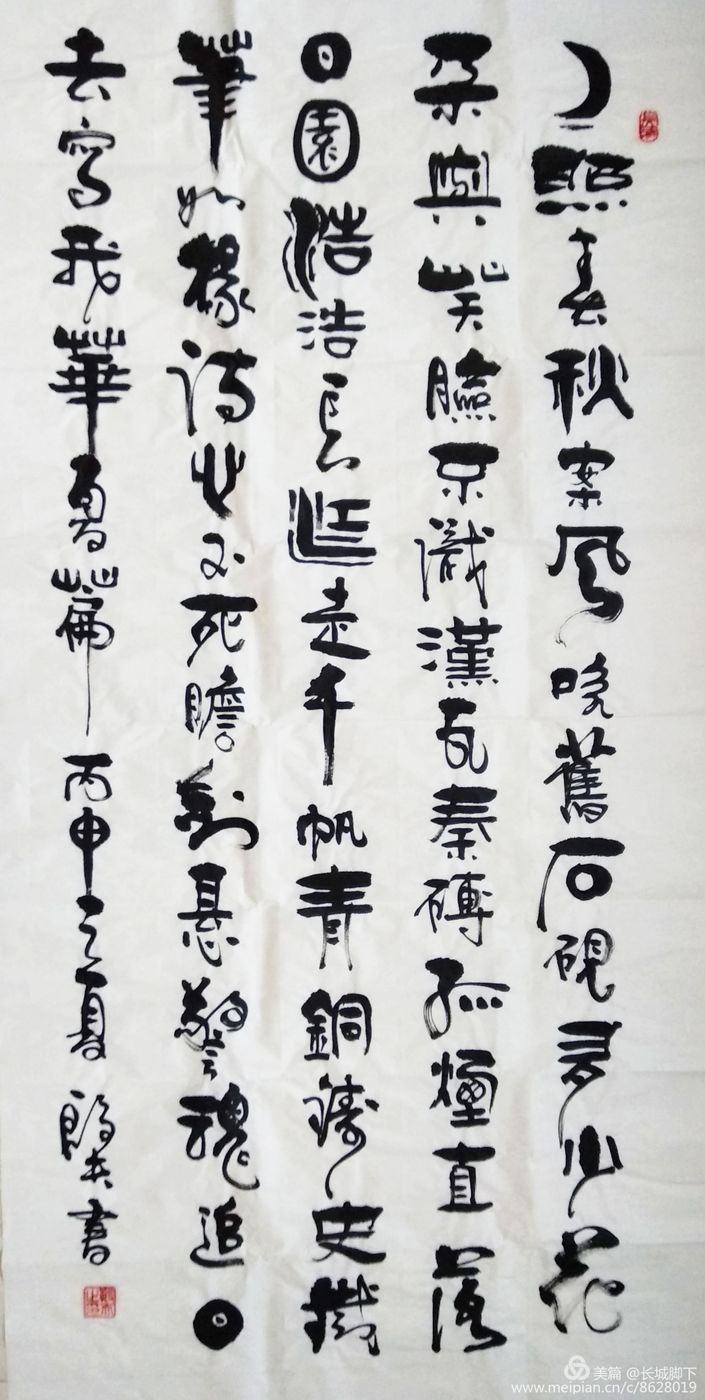 月照春秋案風吹舊石硯多少花
朵與笑臉識漢瓦秦磚孤煙直落
日園浩浩長走千帆青銅鑄史鐵
筆如椽詩心不死膽劍懸警魂追日
去寫我華夏篇丙申之夏書
美篇 @长城脚下
www.meipian.cn/c/8628019